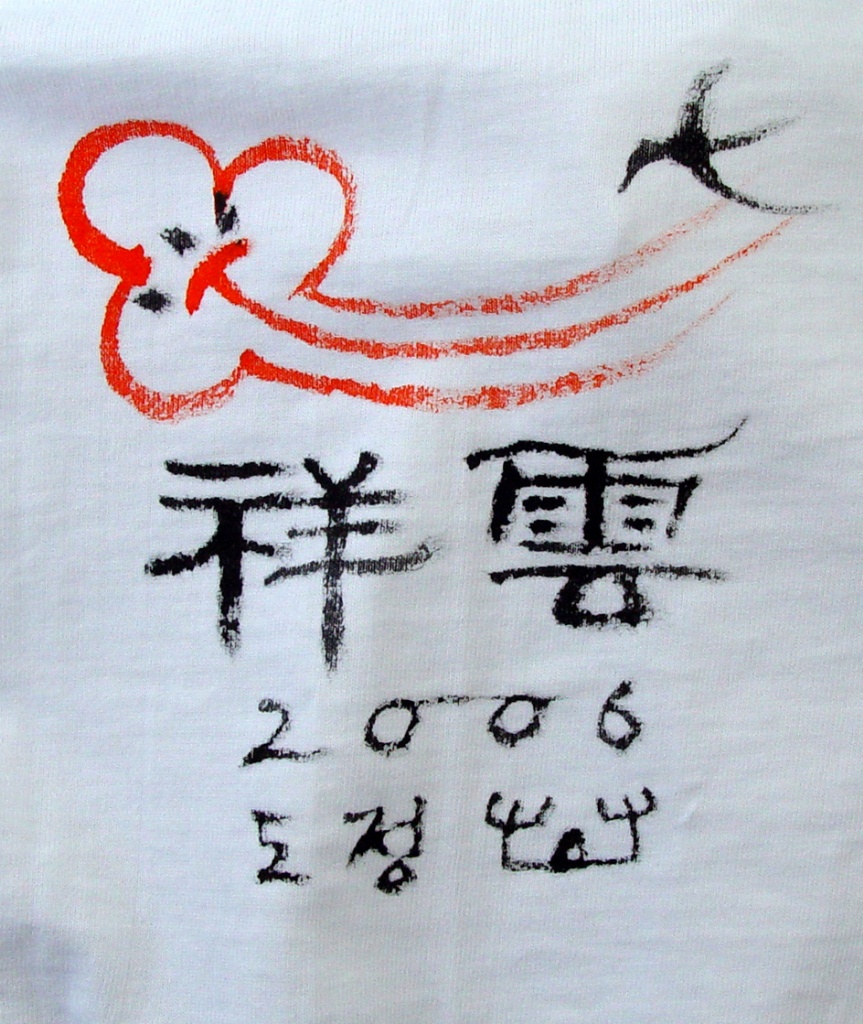 祥雲
2006
도정